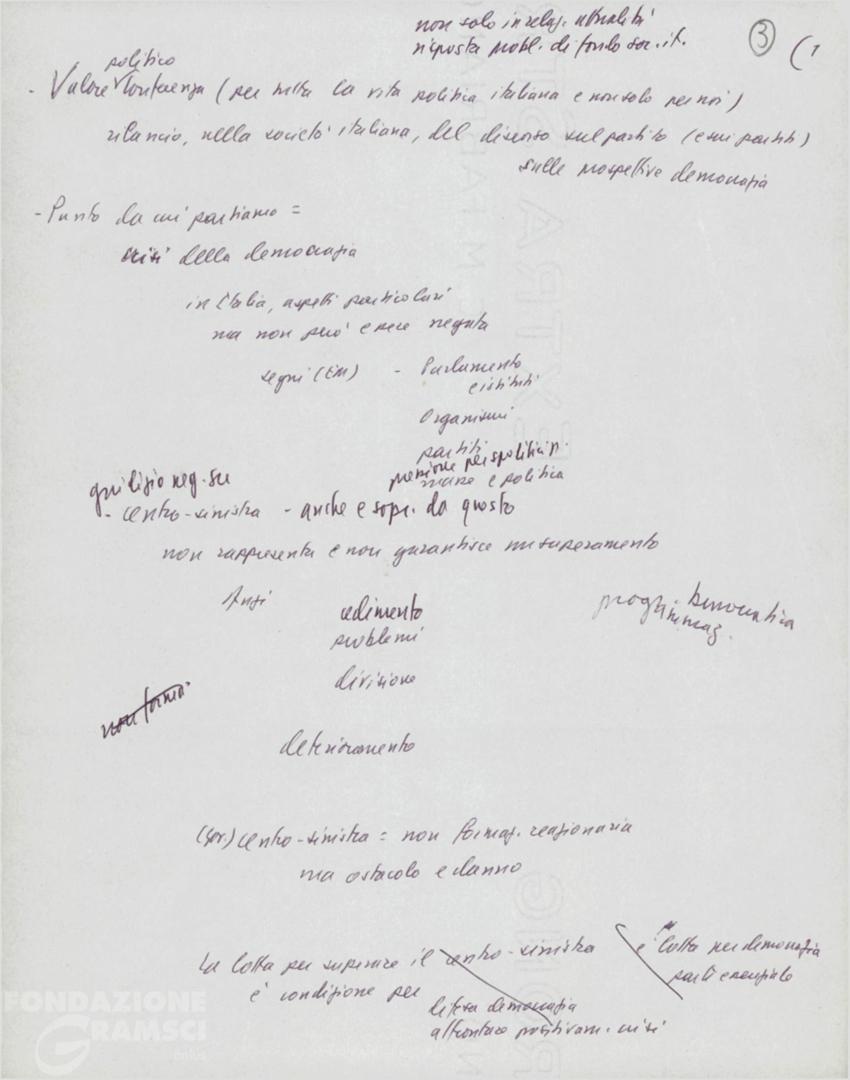 non solo in relaz. attualità
risposta probl. di fondo soc. it.
3
(1
politico
- Valore Conferenza (per tutta la vita politica italiana e non solo per noi)
rilancio, nella società italiana, del discorso sul partito (e sui partiti)
sulle prospettive democrazia
- Punto da cui partiamo =
crisi della democrazia
in Italia, aspetti particolari
ma non può essere negata
segni (EM) - Parlamento
e istituti
Organismi
partiti
masse e politica
giudizio neg. su
- centro-sinistra - anche e sopr. da questo
non rappresenta e non garantisce un superamento
Anzi
cedimento
problemi
divisione
democratica
non forma
deterioramento
centro-sinistra = non formaz. reazionaria
ma ostacolo e danno
La lotta per superare il centro-sinistra
è lotta per democrazia
parte essenziale
è condizione per
difesa democrazia
affrontare positivam. crisi
FONDAZIONE
GRAMSCI
onlus